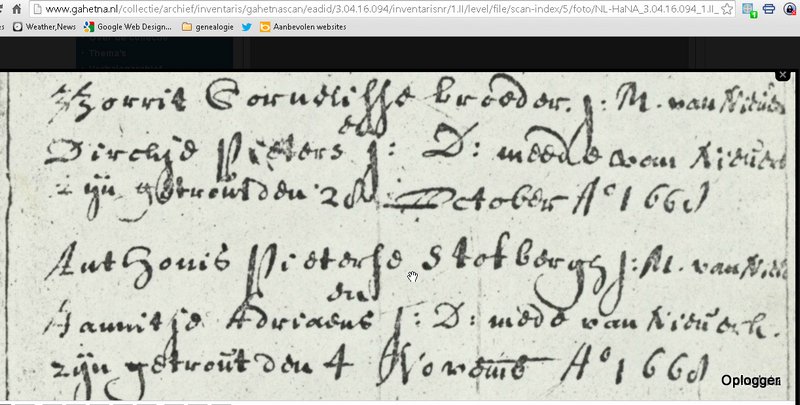 www.gahetna.nl/collectie/archief/inventaris/gahetnascan/eadid/3.04.16.094/inventarisnr/1.II/level/file/scan-index/5/foto/NL-HaNA_3.04.16.094_1.II_
Weather,News Google Web Design... genealogie Aanbevolen websites
Thema's
Gorrit Cornelisse broeder. J: M. van Nieuwer
en
Dirckje Pieters J: D: meede van Nieuwerk
zijn getrout den 28 October A° 1668
Anthonis Pieterse Stolbergh J: M. van Nieu
en
Jannitje Adriaens J: D: mede van Nieuwerk.
zijn getrout den 4 Novemb A° 1668
Oplogger